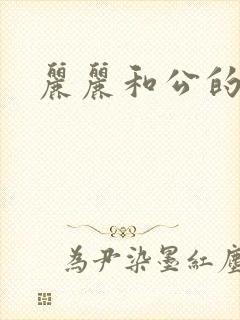 麗麗和公的
為尹染墨紅塵